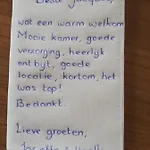 Lieve Jacques,
wat een warm welkom
Mooie kamer, goede
verzorging, heerlijk
ontbijt, goede
locatie, kortom, het
was top!
Bedankt.
Lieve groeten,